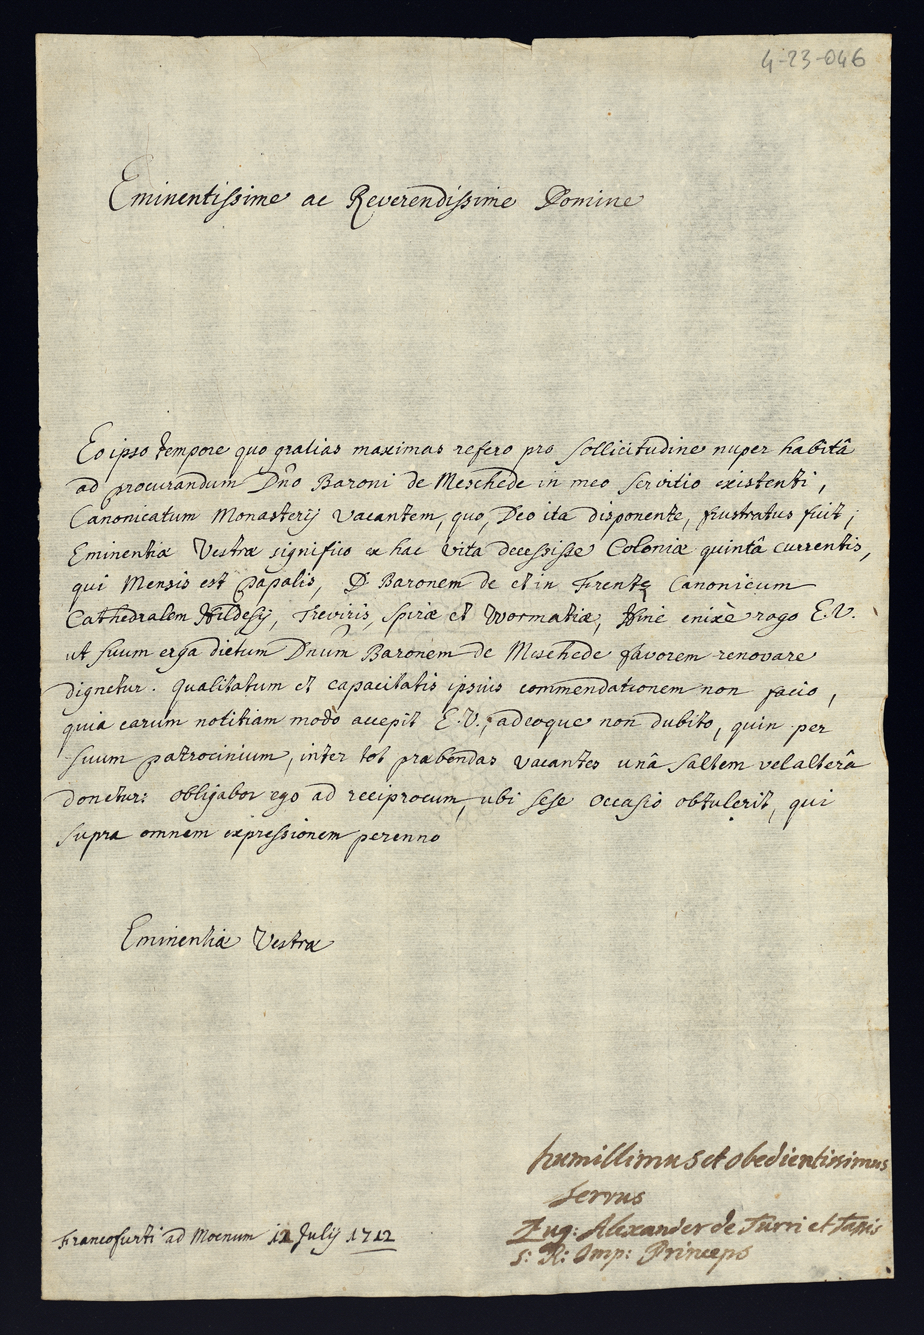 4-23-046
Eminentissime ac Reverendissime Domine
Eo ipso tempore quo gratias maximas refero pro sollicitudine nuper habitâ
ad procurandum Dño Baroni de Meschede in meo servitio existenti,
Canonicatum Monasterij vacantem, quo, Deo ita disponente, frustratus fuit;
Eminentiæ Vestræ significo ex hac vita decessisse Coloniæ quintâ currentis,
qui Mensis est Papalis, D. Baronem de et in Frentz Canonicum
Cathedralem Hildesij, Treviris, Spiræ et Wormatiæ, Hinc enixè rogo E.V.
ut suum erga dictum Dnum Baronem de Meschede favorem renovare
dignetur. Qualitatum et capacitatis ipsius commendationem non facio,
quia earum notitiam modo accepit E.V., adeoque non dubito, quin per
suum patrocinium, inter tot præbendas vacantes unâ saltem vel alterâ
donetur: obligabor ego ad reciprocum, ubi sese occasio obtulerit, qui
supra omnem expressionem perenno
Eminentiæ Vestræ
humillimus et obedientissimus
servus
Eug: Alexander de Turri et Tassis
S: R: Imp: Princeps
Francofurti ad Moenum 12 Julij 1712